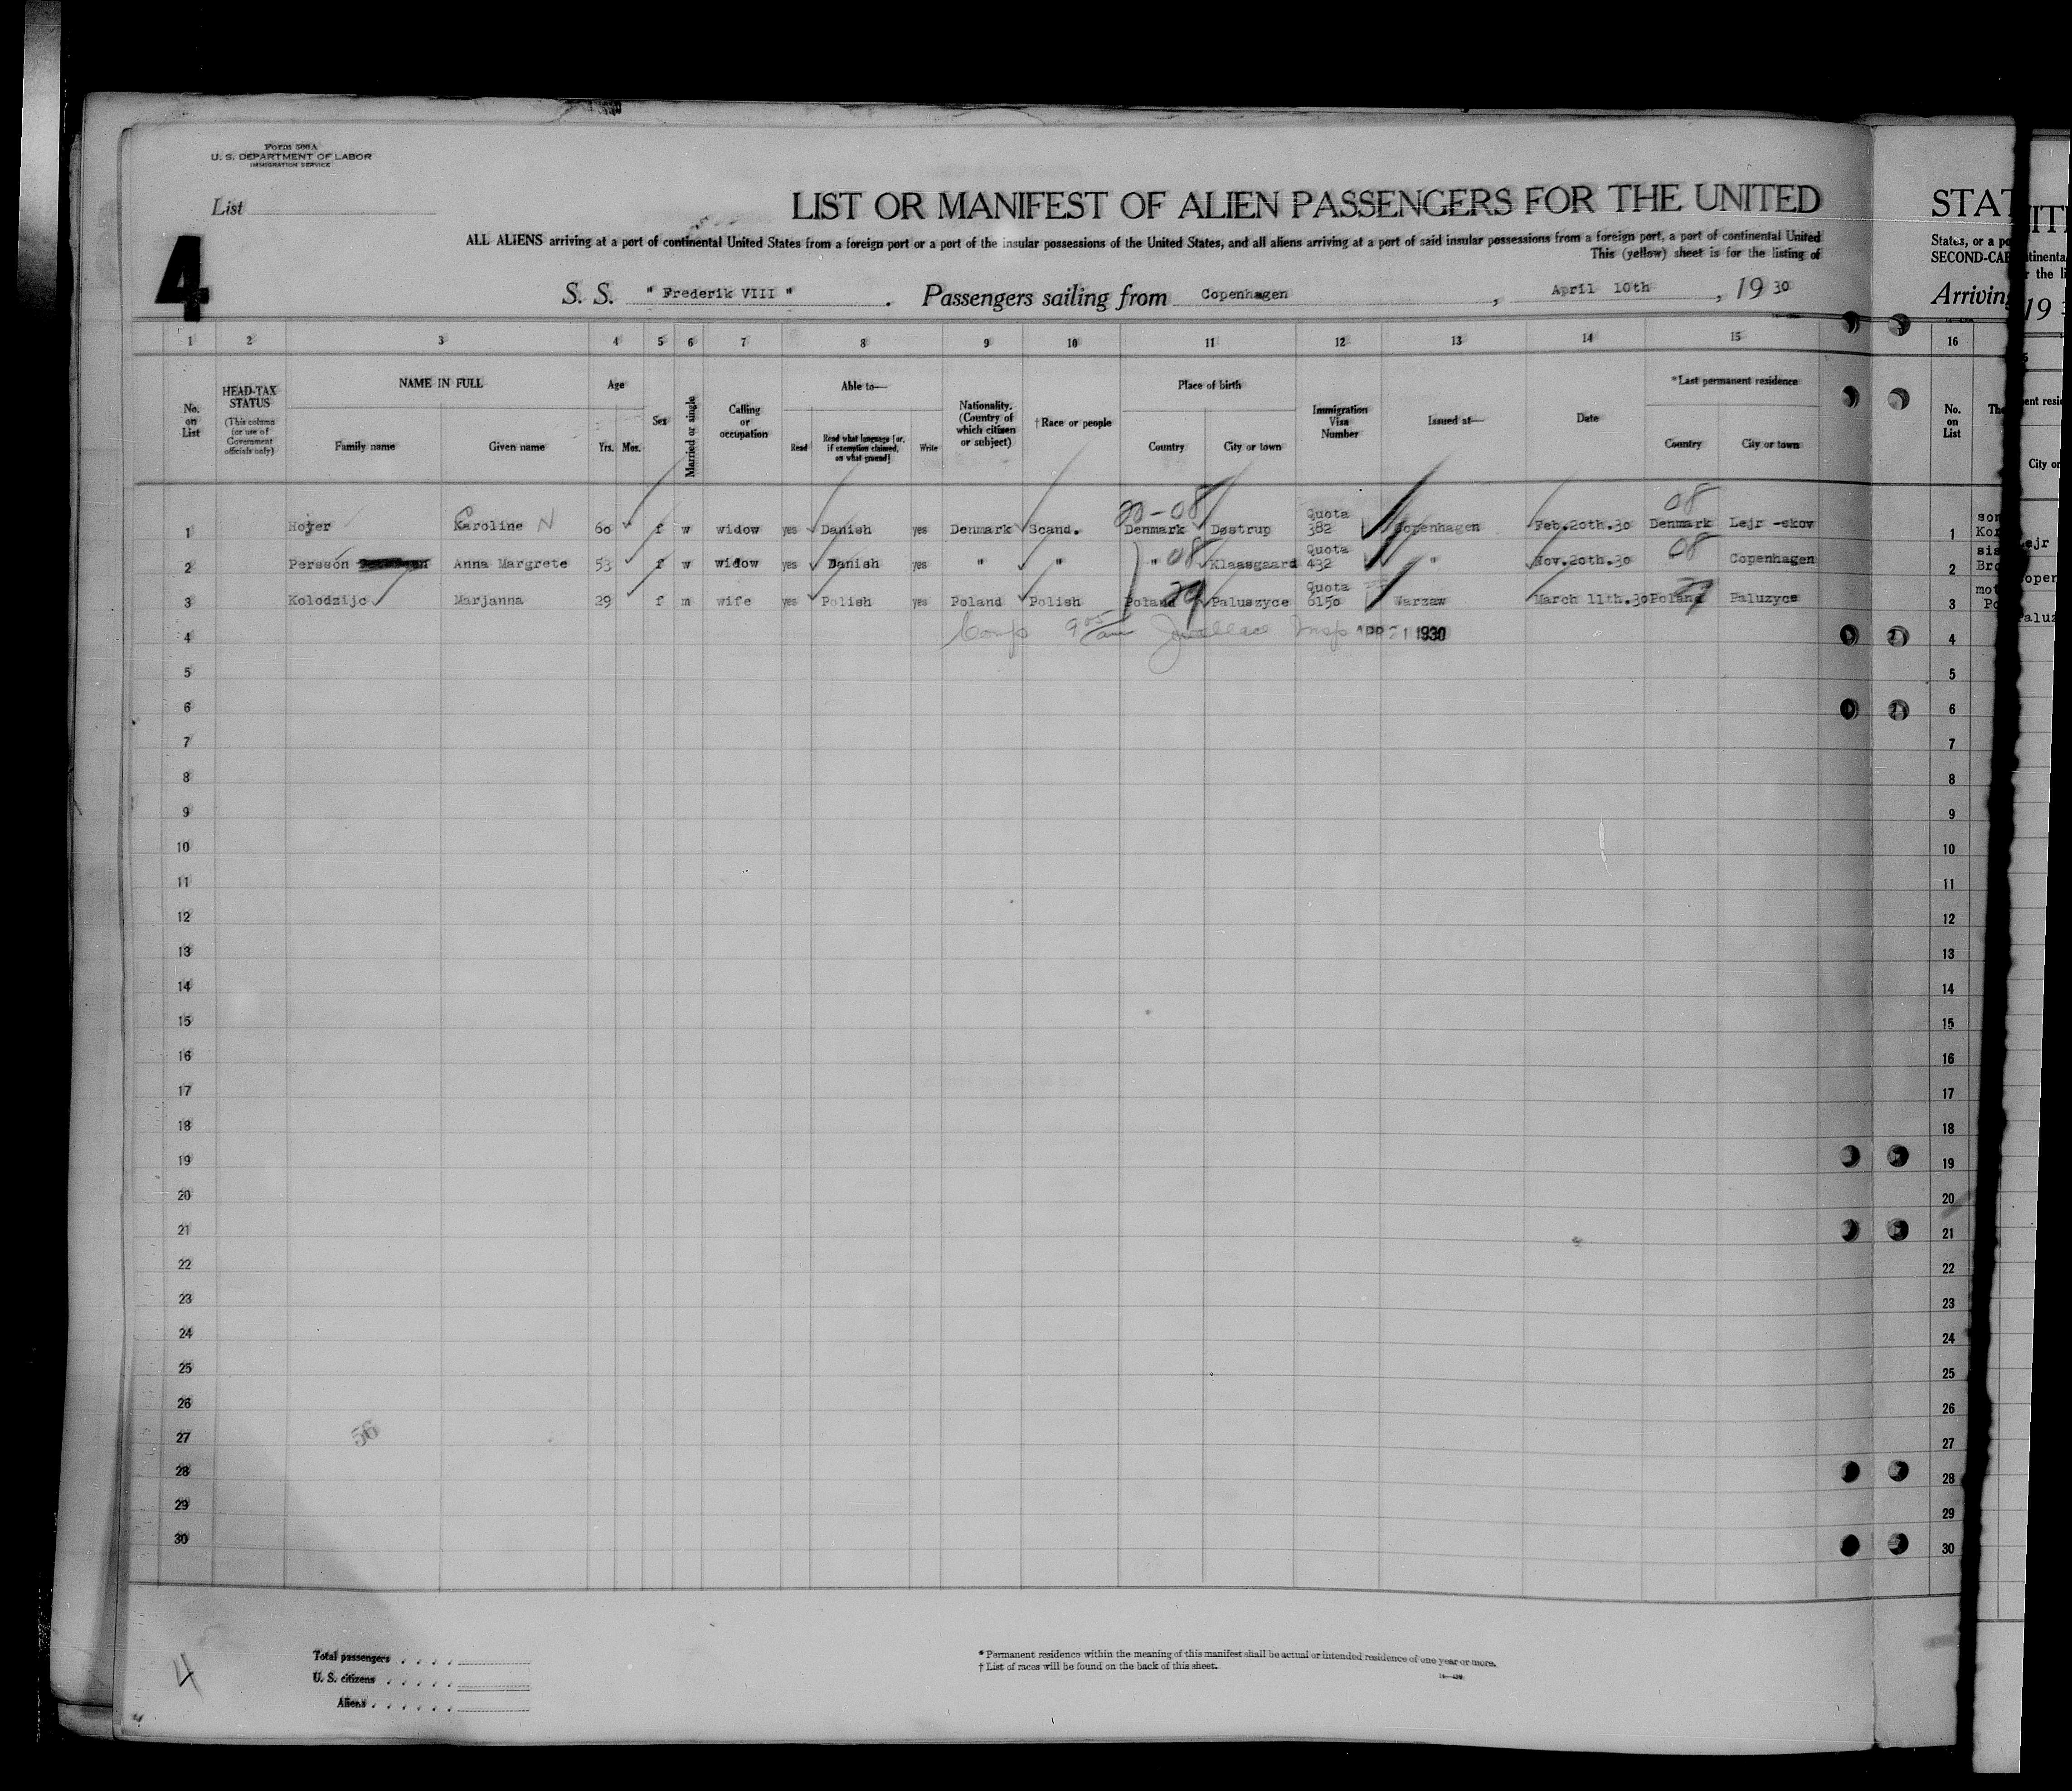 Form 500A
U. S. DEPARTMENT OF LABOR
IMMIGRATION SERVICE
List
4
LIST OR MANIFEST OF ALIEN PASSENGERS FOR THE UNITED
ALL ALIENS arriving at a port of continental United States from a foreign port or a port of the insular possessions of the United States, and all aliens arriving at a port of said insular possessions from a foreign port, a port of continental United
This (yellow) sheet is for the listing of
S. S. " Frederik VIII " . Passengers sailing from Copenhagen , April 10th , 19 30
STAT
States, or a po
SECOND-CAB
Arriving
1 2 3 4 5 6 7 8 9 10 11 12 13 14 15 16
No. on List
HEAD-TAX STATUS
(This column for use of Government officials only)
NAME IN FULL
Family name Given name
Age
Yrs. Mos.
Sex
Married or single
Calling or occupation
Able to—
Read Read what language [or, if exemption claimed, on what ground] Write
Nationality. (Country of which citizen or subject)
†Race or people
Place of birth
Country City or town
Immigration Visa Number
Issued at—
Date
*Last permanent residence
Country City or town
No. on List
1 Hoyer Karoline N 60 f w widow yes Danish yes Denmark Scand. Denmark Døstrup Quota 382 Copenhagen Feb.20th.30 08 Denmark Lejr -skov
2 Persson Anna Margrete 53 f w widow yes Danish yes " " " 08 Klaasgaard Quota 432 " Nov.20th.30 08 Copenhagen
3 Kolodzijc Marjanna 29 f m wife yes Polish yes Poland Polish Poland 29 Paluszyce Quota 6150 Warzaw March 11th.30 Poland 29 Paluzyce
4 APR 21 1930
5
6
7
8
9
10
11
12
13
14
15
16
17
18
19
20
21
22
23
24
25
26
27
28
29
30
56
4
Total passengers
U. S. citizens
Aliens
* Permanent residence within the meaning of this manifest shall be actual or intended residence of one year or more.
† List of races will be found on the back of this sheet.